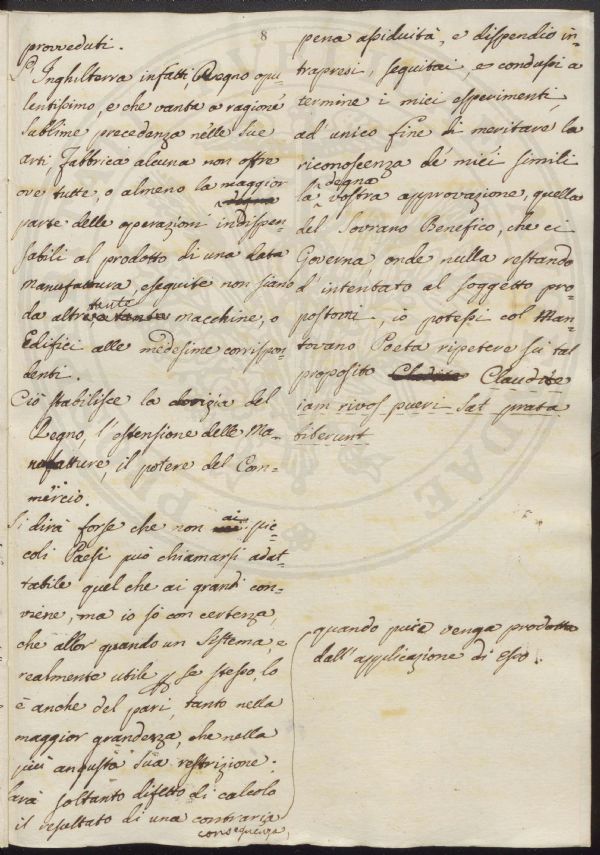 8
provveduti.
L'Inghilterra infatti, Regno opu-
lentissimo, e che vanta a ragione
sublime precedenza nelle sue
arti, fabbrica alcuna non offre
ove tutte, o almeno la maggior
parte delle operazioni indispen-
sabili al prodotto di una data
manufattura, eseguite non siano
da altrettante macchine, o
Edifici alle medesime corrispon-
denti.
Ciò stabilisce la dovizia del
Regno, l'ostensione delle Ma-
nufatture, il potere del Com-
mercio.
Si dirà forse che non ai pic-
coli Paesi può chiamarsi adat-
tabile quel che ai grandi con-
viene, ma io so con certezza,
che allor quando un sistema, e
realmente utile per se stesso, lo
è anche del pari, tanto nella
maggior grandezza, che nella
più angusta sua restrizione.
Sarà soltanto difetto di calcolo
il resultato di una contraria
consequenza,
quando pure venga prodotta
dall'applicazione di Esso.
pena assiduità, e dispendio in-
trapresi, seguitai, e condussi a
termine i miei esperimenti,
ad unico fine di meritare la
riconoscenza de' miei simili
la degna vostra approvazione, quella
del Sovrano Benefico, che ci
Governa, onde nulla restando
d'intentato al soggetto pro-
postomi, io potessi col Man-
tovano Poeta ripetere sù tal
proposito Claudite
iam rivos pueri sat prata
biberunt